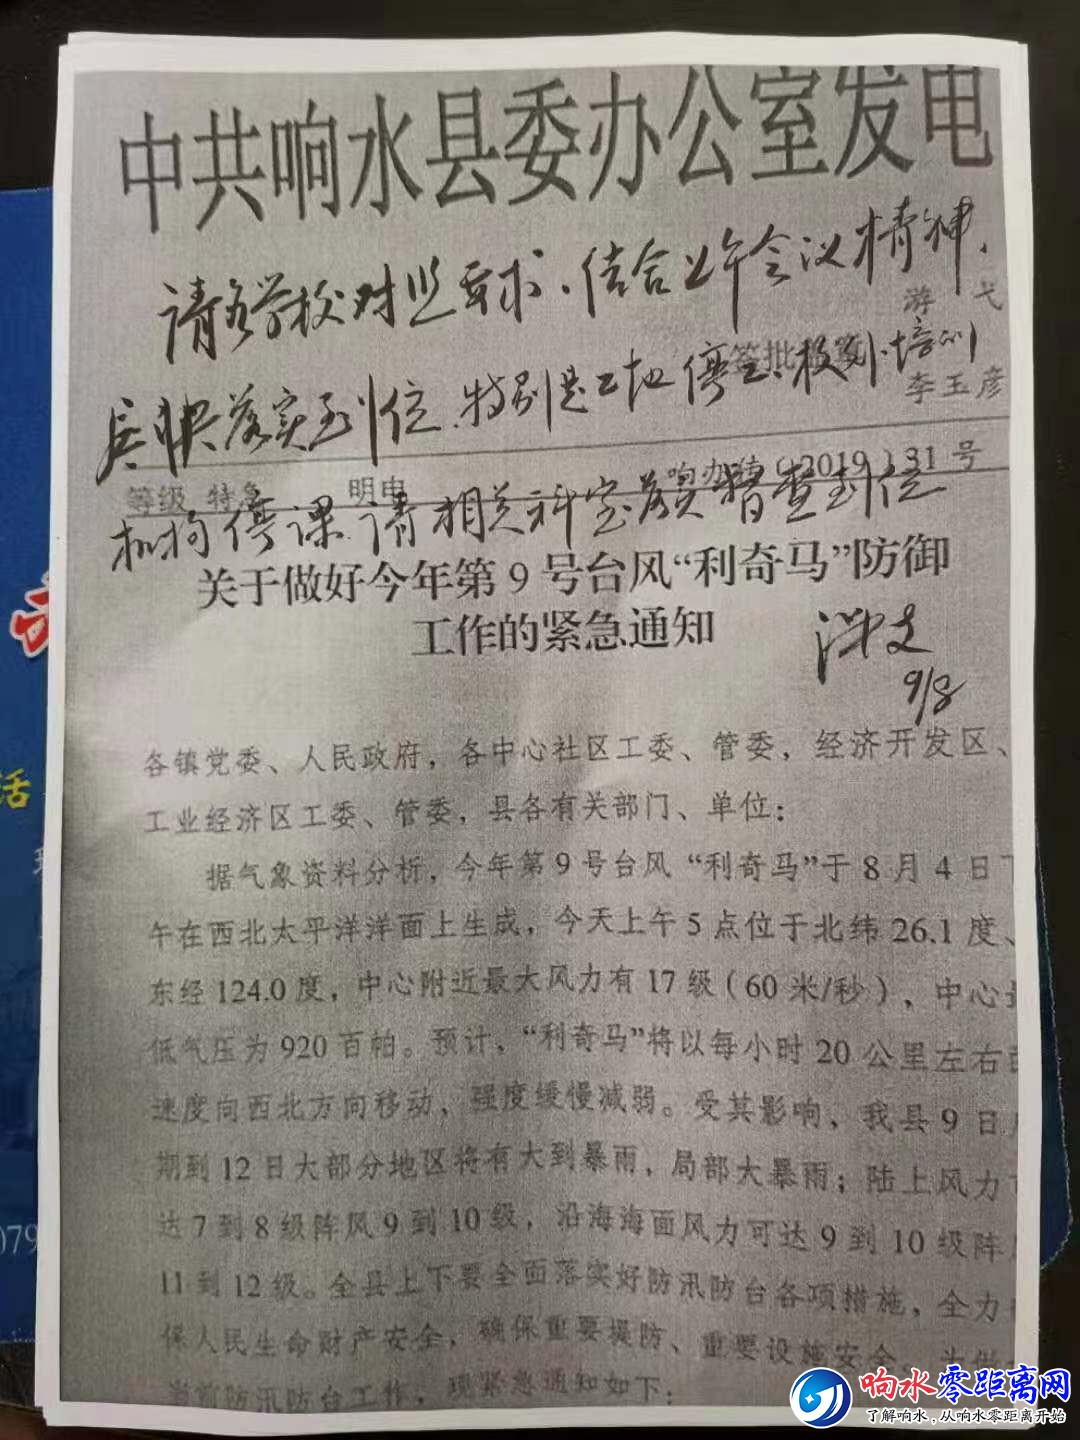 中共响水县委办公室发电
请各学校对照要求、结合上午会议精神、
游 弋
签批
尽快落实到位.特别是工地停工、校外培训
李玉彦
等级 特急 明电 响办传（2019）31 号
机构停课.请相关科室督查到位
关于做好今年第 9 号台风“利奇马”防御
工作的紧急通知
9/8
各镇党委、人民政府，各中心社区工委、管委，经济开发区、
工业经济区工委、管委，县各有关部门、单位：
据气象资料分析，今年第 9 号台风 “利奇马”于 8 月 4 日下
午在西北太平洋洋面上生成，今天上午 5 点位于北纬 26.1 度、
东经 124.0 度，中心附近最大风力有 17 级（60 米/秒），中心最
低气压为 920 百帕。预计，“利奇马”将以每小时 20 公里左右
速度向西北方向移动，强度缓慢减弱。受其影响，我县 9 日
期到 12 日大部分地区将有大到暴雨，局部大暴雨；陆上风力可
达 7 到 8 级阵风 9 到 10 级，沿海海面风力可达 9 到 10 级阵
11 到 12 级。全县上下要全面落实好防汛防台各项措施，全力
保人民生命财产安全，确保重要堤防、重要设施安全。为做
当前防汛防台工作，现紧急通知如下：
活
079
响水零距离网
了解响水，从响水零距离开始